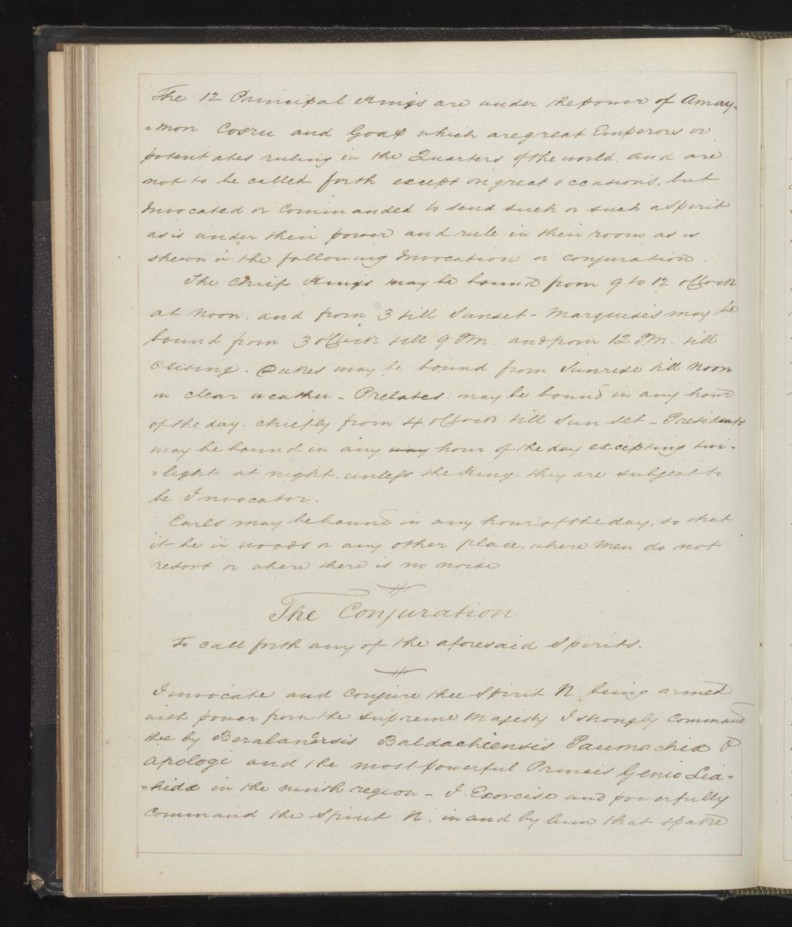 The 12 Principal Kings are under the power of Amay=
=mon Corsu and Goap which are great Emperors or
potentates ruling in the Quarters of the world and are
not to be called forth except on great occasions, but
Invocated or Commanded to send such or such a Spirit
as is under their power and rule in their room as is
shewn in the following Invocation or conjuration.
The Chief Kings may be bound from 9 to 12 oClock
at Noon. and from 3 till Sunset - Marquises may be
bound from 3 oClock till 9 PM. and from 12 PM. till
Sun rising. Dukes may be bound from Sunrise till Noon
in clear weather - Prelates may be bound in any hour
of the day. chiefly from 4 oClock till Sun set - Presidents
may be bound in any hour of the day excepting twi-
=light at night. unless the King they are subject to
be Invocator.
Earls may be bound in any hour of the day, so that
it be in woods or any other place, where Men do not
resort or where there is no noise
The Conjuration
To call forth any of the aforesaid Spirits.
I invocate and conjure thee Spirit N. being armed
with power from the Supreme Majesty I strongly Command
thee by Beralanensis Baldachiensis Paumachia
Apologi and the most powerful Princes Genio Lia-
-hida in the region - I Exorcise and powerfully
Command the Spirit N. in and by him that spake